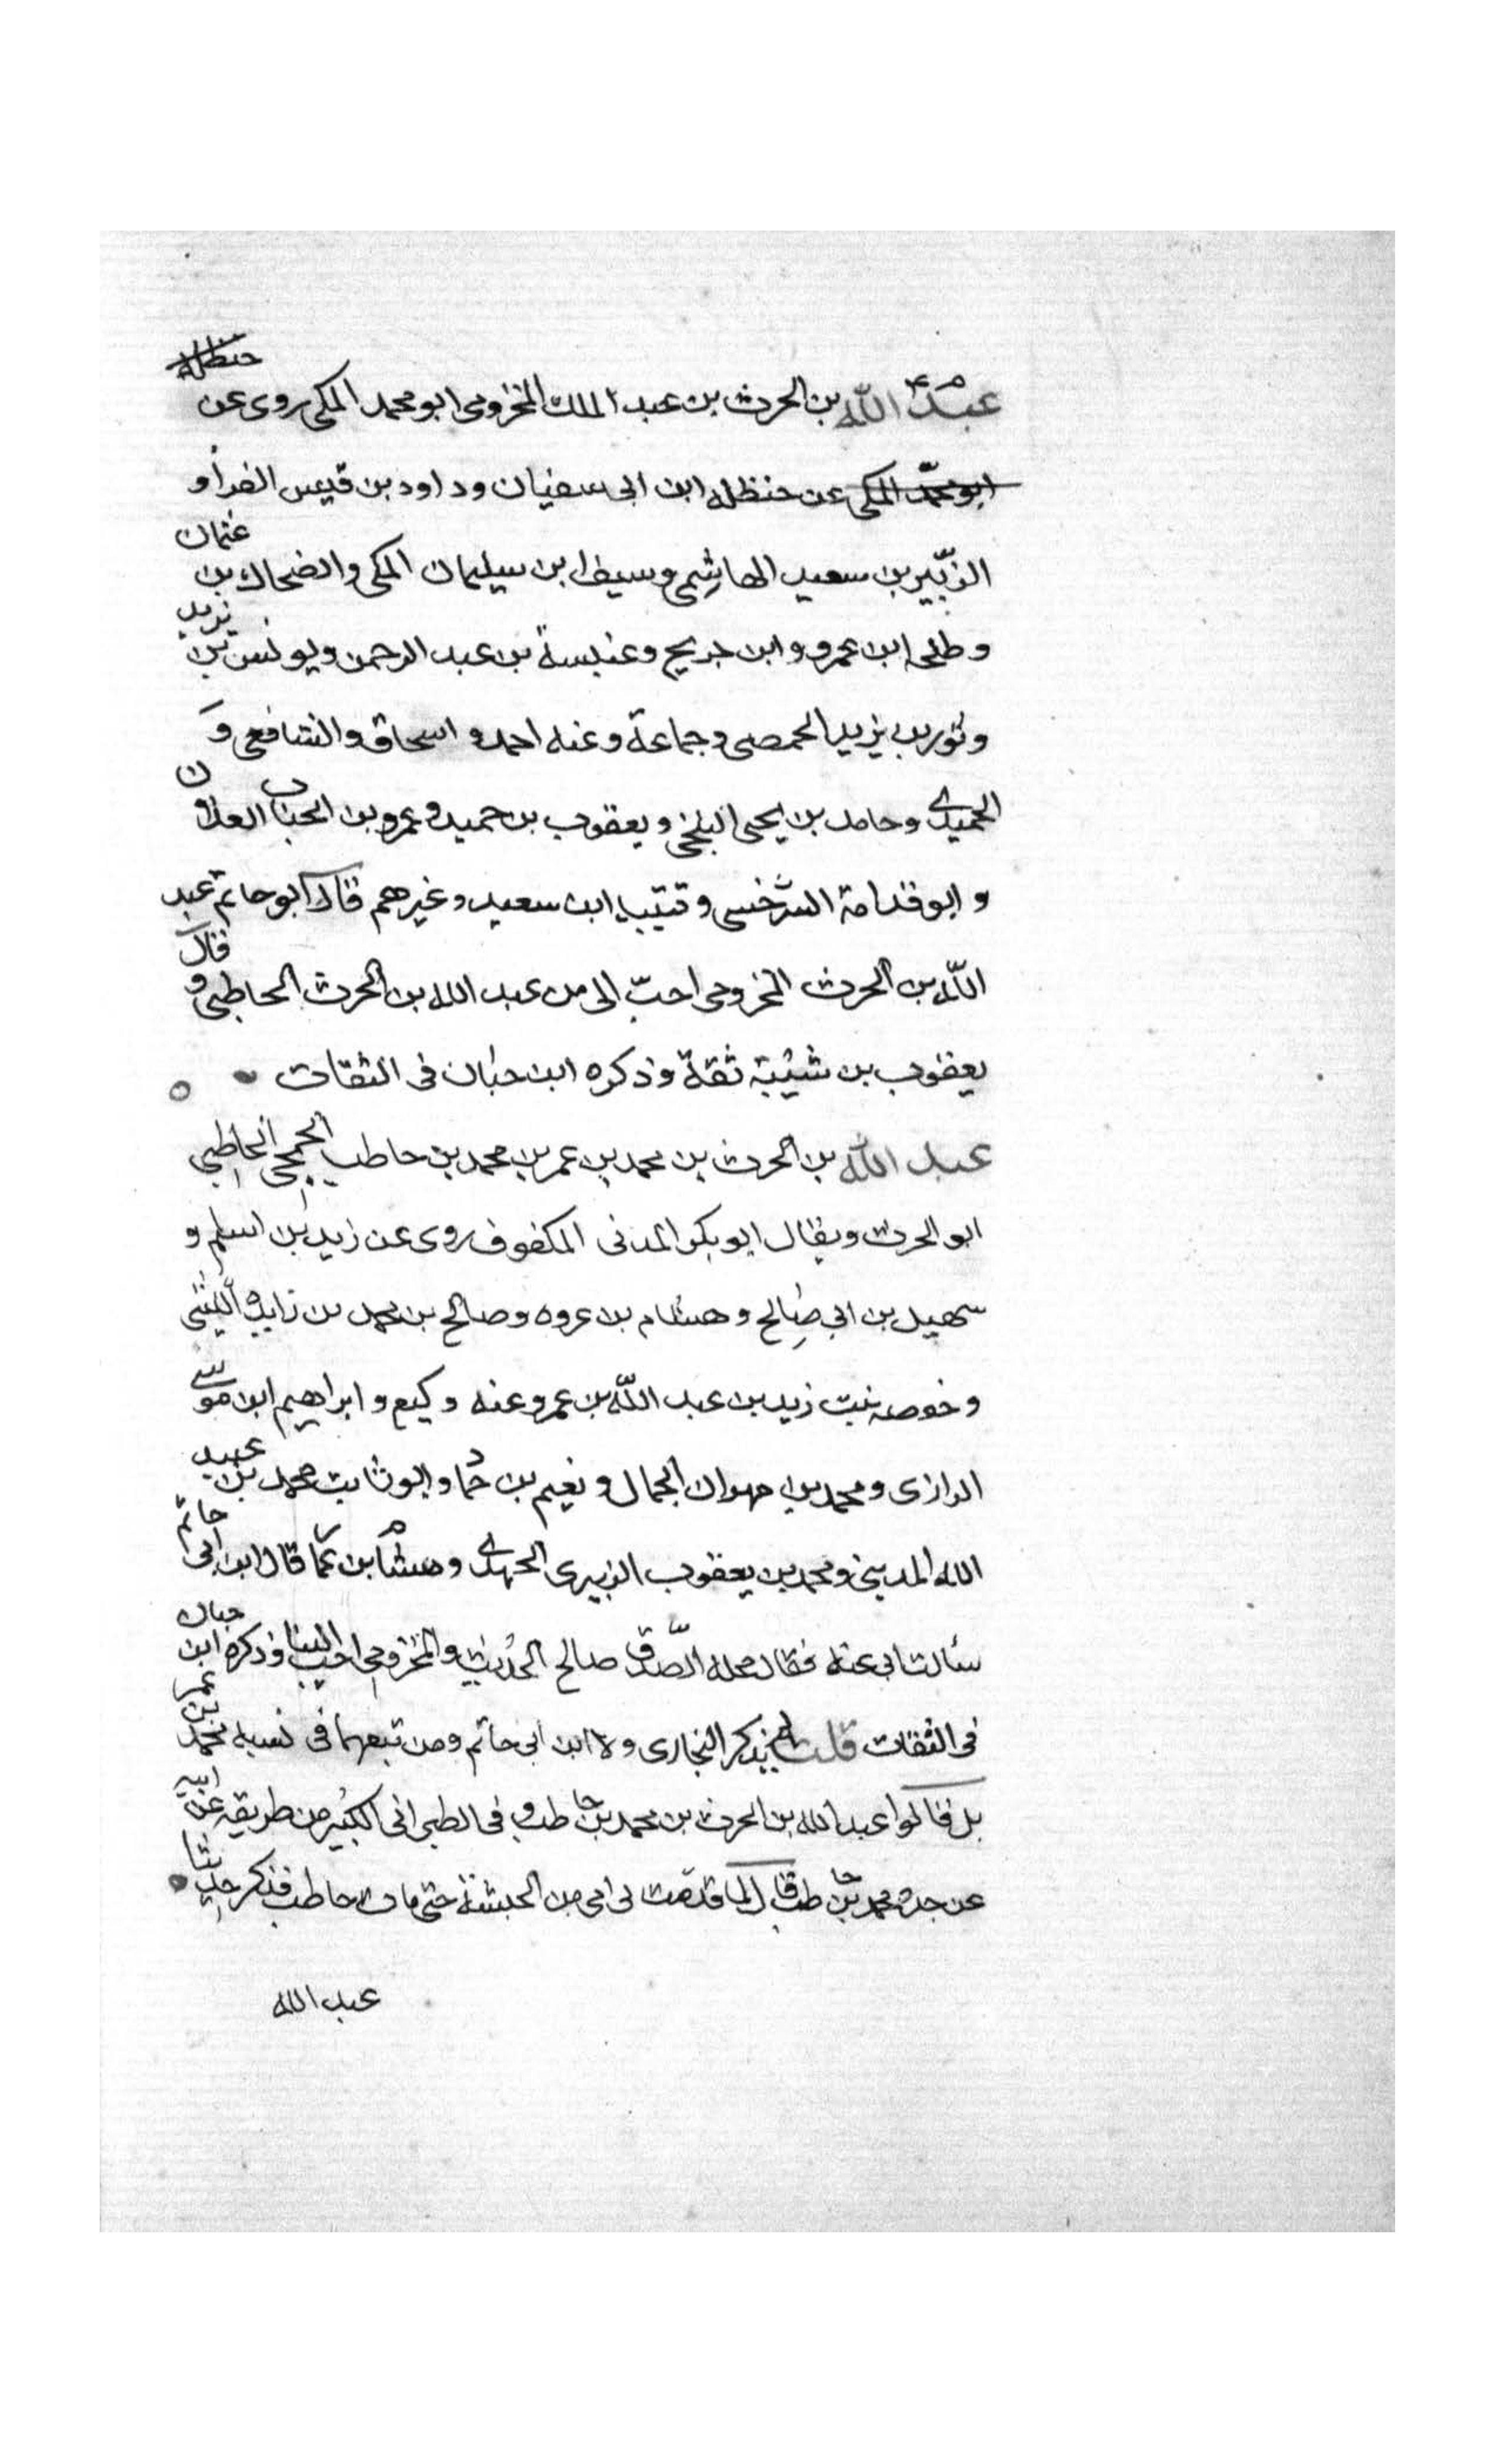 عبد الله بن الحرث بن عبد الملك المخزومي ابو محمد المكي روى عن حنظله
ابو محمد المكي عن حنظله ابن ابى سفيان وداود بن قيس الفرا و
الزبير بن سعيد الهاشمي وسيف ابن سيليمان المكى والضحاك بن عثمان
وطلحه ابن عمرو وابن جريج وعنبسة بن عبد الرحمن ويونس بن يزيد
وثور بن يزيد الحمصى وجماعة وعنه احمد و اسحاق والشافعى و
الحميدي وحامد بن يحيى البلخى ويعقوب بن حميد وعمرو بن الحباب العلاف
و ابو قدامة السرخسى وقتيبه ابن سعيد وغيرهم قال ابو حاتم عبد
الله بن الحرث المخزومى احبّ الى من عبد الله بن الحرث الحاطبى و قال
يعقوب بن شيبة ثقة وذكره ابن حبان فى الثقات
عبد الله بن الحرث بن محمد بن عمر بن محمد بن حاطب الجمحى الحاطبي
ابو الحرث ويقال ابو بكر المدنى المكفوف روى عن زيد بن اسلم و
سهيل بن ابي صالح و هشام بن عروه وصالح بن محمد بن زايده الليثى
و خوصه بنت زيد بن عبد الله بن عمر وعنه وكيع و ابراهيم ابن موسى
الرازى ومحمد بن مهران الجمال و نعيم بن حماد وابو ثابت محمد بن عبيد
الله المدينى ومحمد بن يعقوب الزبيرى الجهدي وهشام بن عمار قال ابن ابى حاتم
سألت ابى عنه فقال محله الصّدق صالح الحديث والمخزومي احب الينا وذكره ابن حبان
فى الثقات قلت لم يذكر البخارى ولا ابن ابى حاتم ومن تبعهما فى نسبه محمد بن عمر
بل قالوا عبد الله بن الحرث بن محمد بن حاطب و فى الطبرانى الكبير من طريقه عن ابيه
عن جده محمد بن حاطب قال لما قدمت بى امى من الحبشة حتى مات حاطب فذكر حديثا
عبد الله